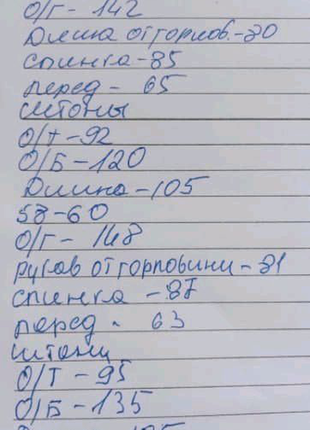 О/Г - 142
Длина от горлов. - 80
спинка - 85
перед - 65
штаны
О/Т - 92
О/Б - 120
Длина - 105
58 - 60
О/Г - 148
рукав от горловини - 81
спинка - 87
перед - 63
штани
О/Т - 95
О/Б - 135